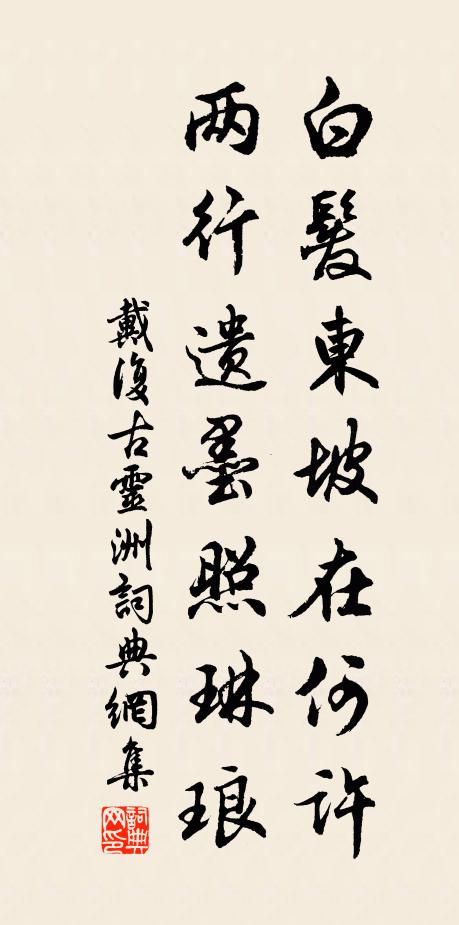 白髮東坡在何許
两行遺墨照琳琅
戴復古靈洲詞典網集
詞典网印